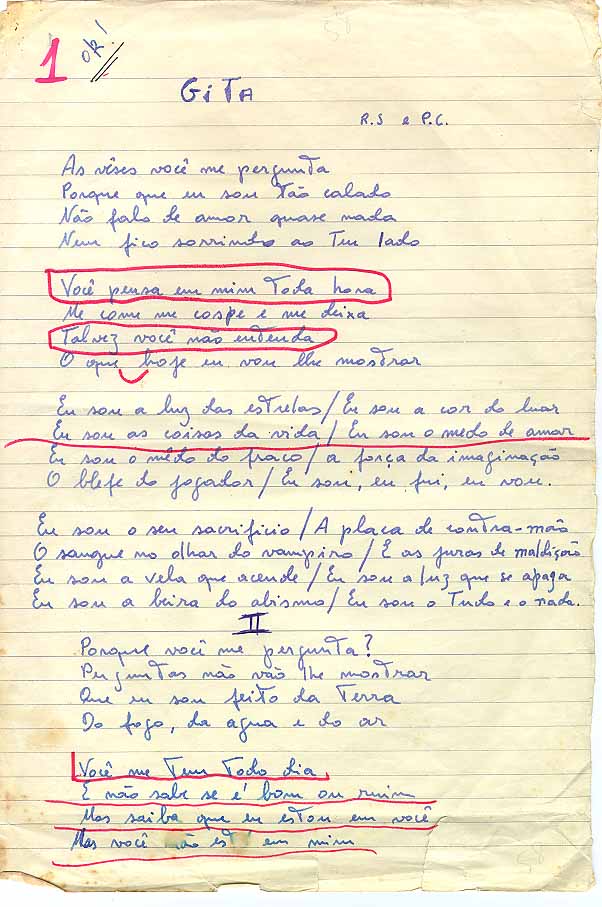 1 ok!
GiTA
R.S e P.C.
As vêses você me pergunta
Porque que eu sou tão calado
Não falo de amor quase nada
Nem fico sorrindo ao teu lado
Você pensa em mim toda hora
Me come me cospe e me deixa
Talvez você não entenda
O que hoje eu vou lhe mostrar
Eu sou a luz das estrelas / Eu sou a cor do luar
Eu sou as coisas da vida / Eu sou o medo de amar
Eu sou o mêdo do fraco / a força da imaginação
O blefe do jogador / Eu sou, eu fui, eu vou.
Eu sou o seu sacrificio / A placa de contra-mão
O sangue no olhar do vampiro / E as juras de maldição
Eu sou a vela que acende / Eu sou a luz que se apaga
Eu sou a beira do abismo / Eu sou o Tudo e o nada.
II
Porque você me pergunta?
Perguntas não vão lhe mostrar
Que eu sou feito da Terra
Do fogo, da agua e do ar
Você me Tem Todo dia
E não sabe se é bom ou ruim
Mas saiba que eu estou em você
Mas você não está em mim